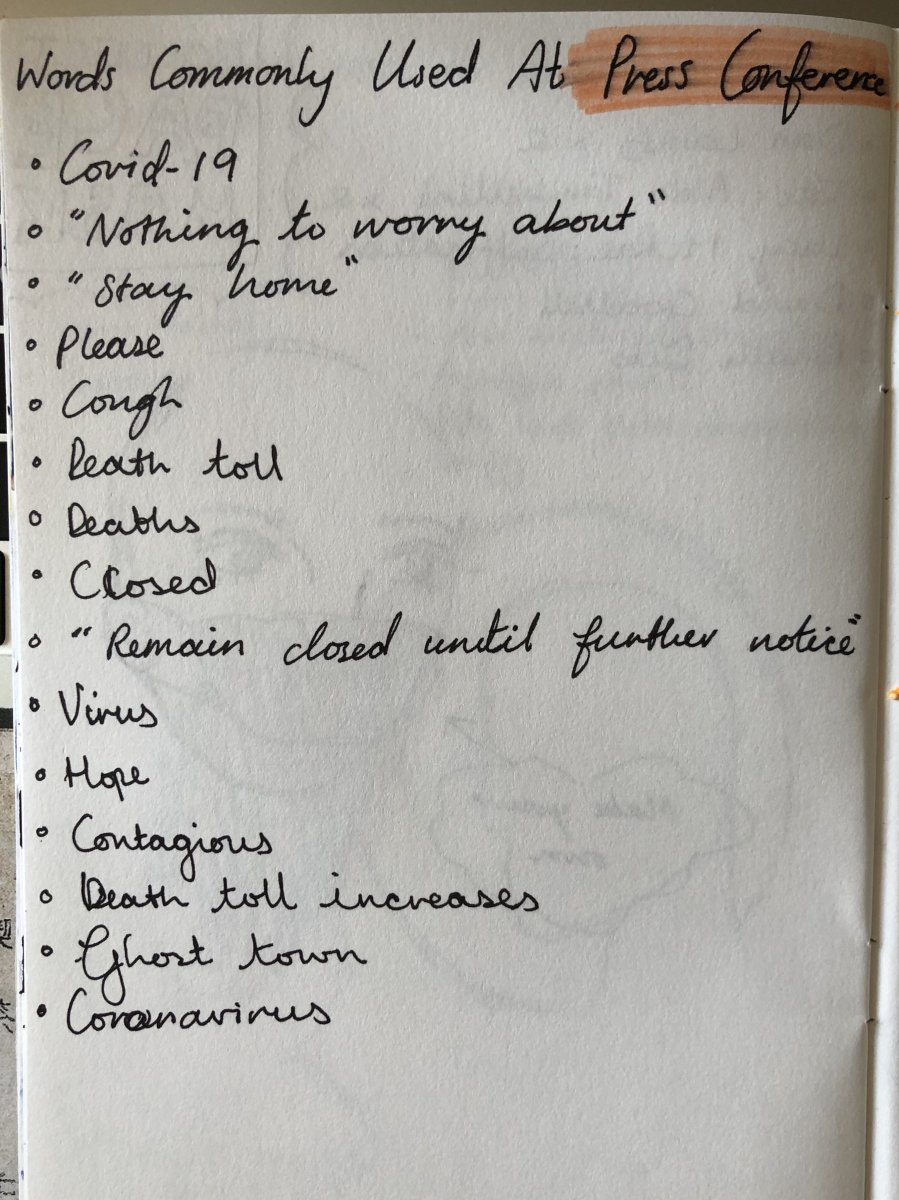 Words Commonly Used At Press Conference
• Covid-19
• "Nothing to worry about"
• "Stay home"
• Please
• Cough
• Death toll
• Deaths
• Closed
• "Remain closed until further notice"
• Virus
• Hope
• Contagious
• Death toll increases
• Ghost town
• Coronavirus